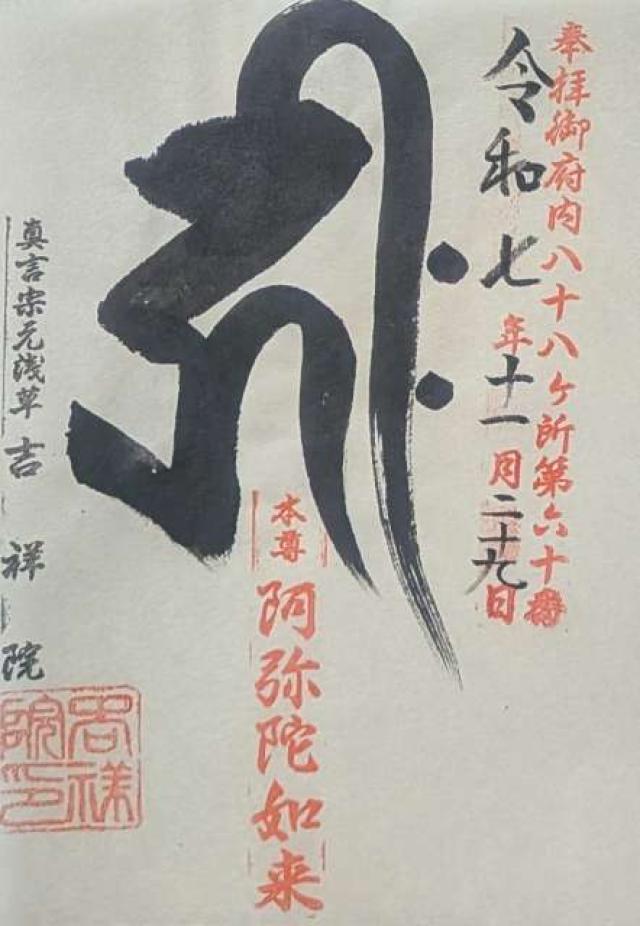 奉拝御府内八十八ヶ所第六十番
令和七年十一月二十九日
ह्रीः
本尊 阿弥陀如来
真言宗元浅草 吉祥院
吉祥院印